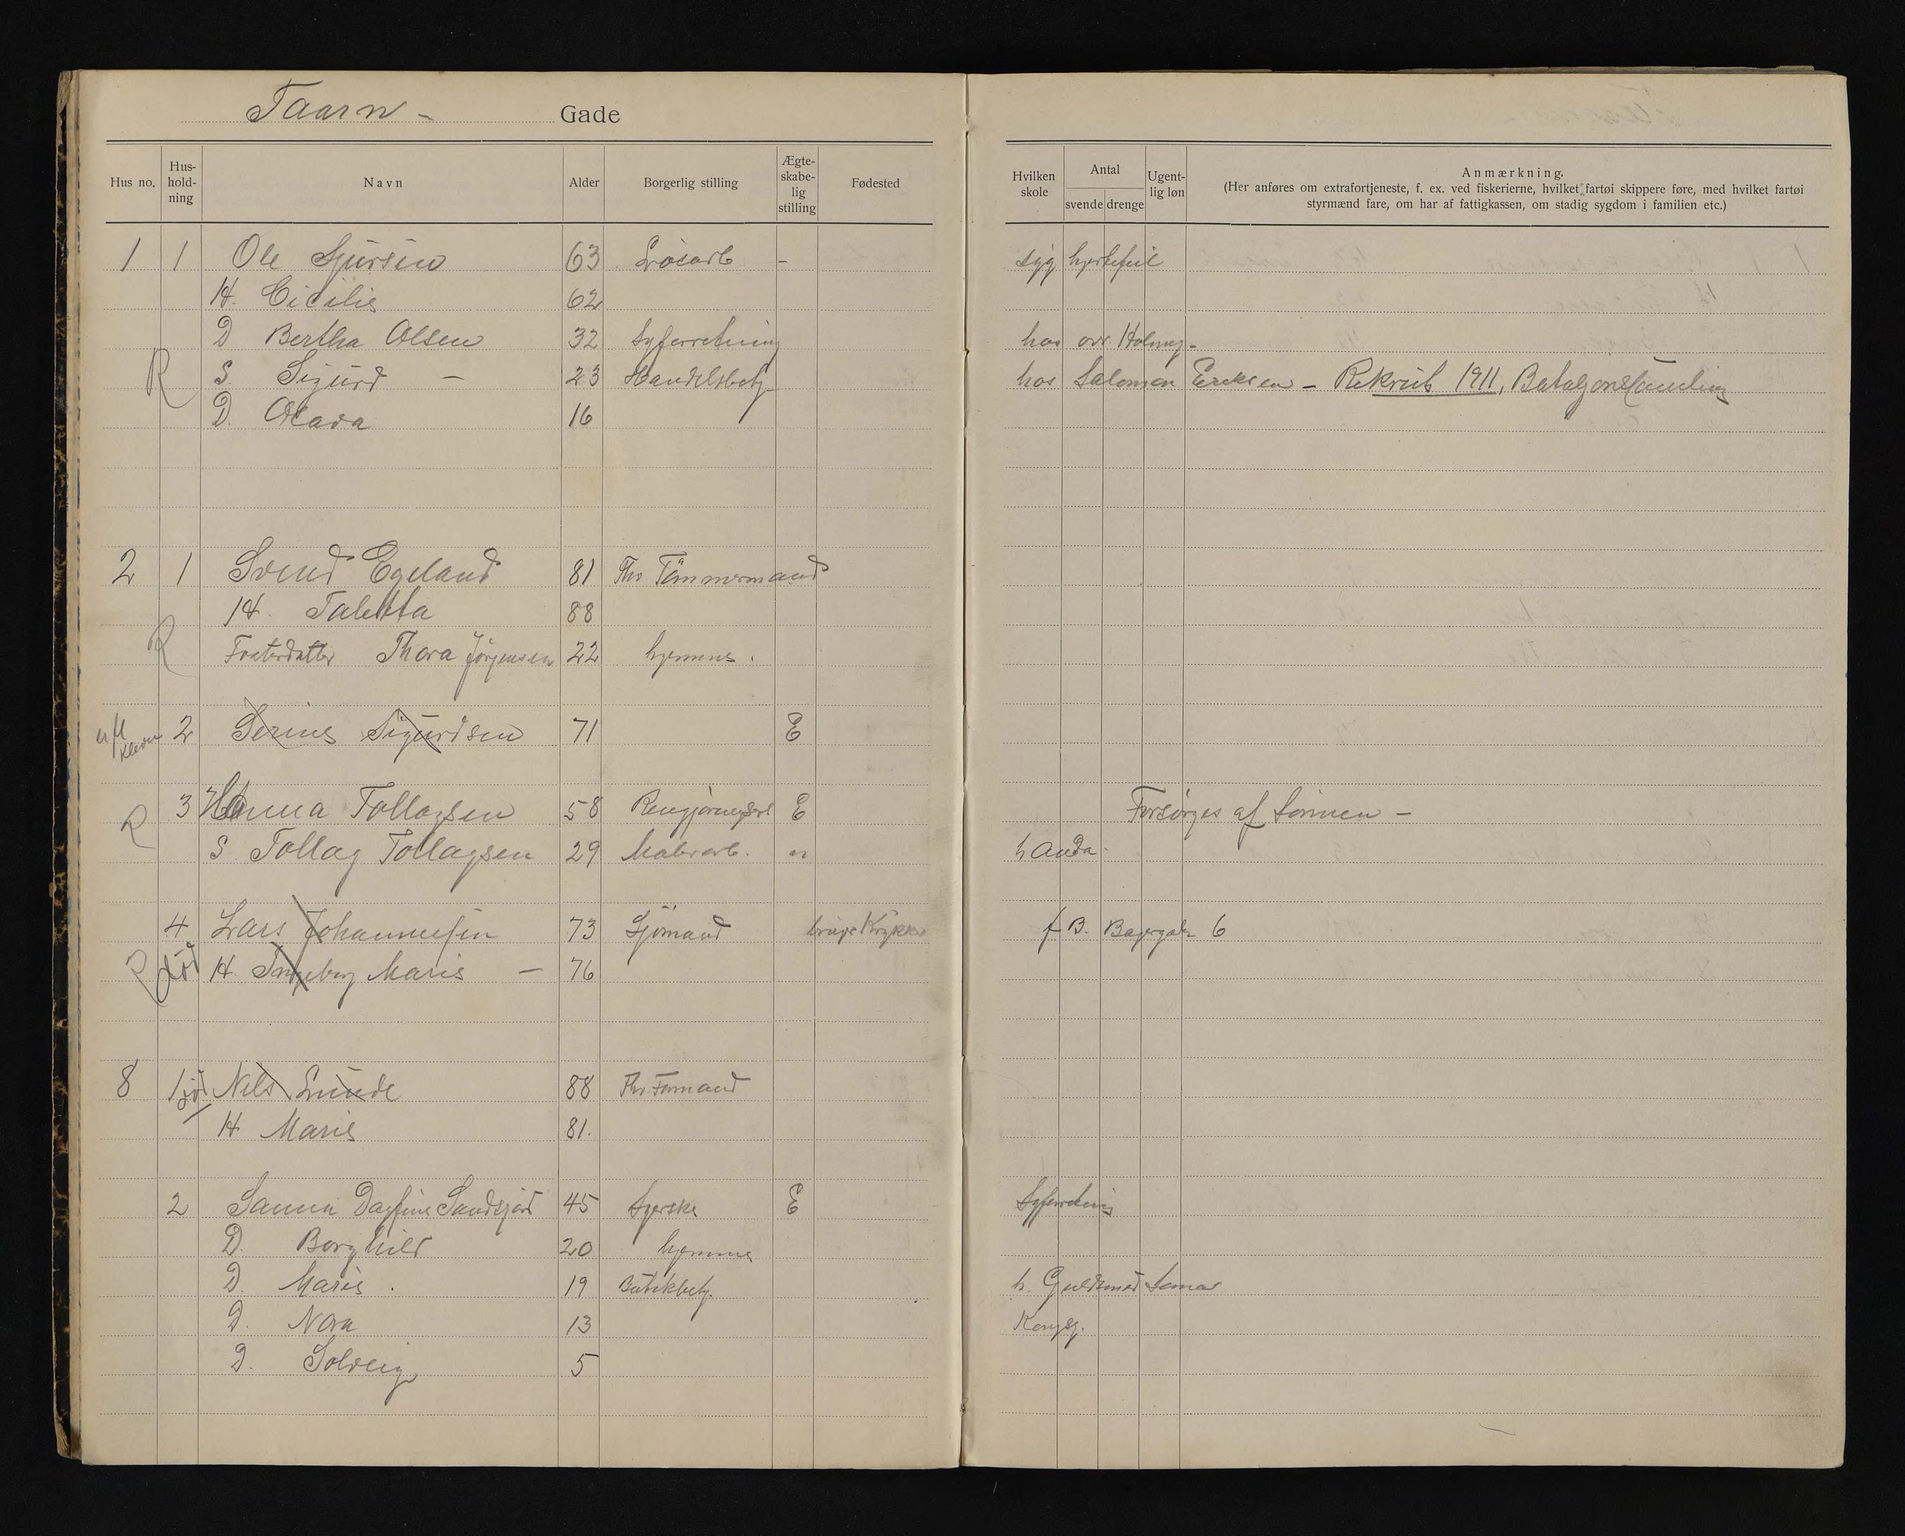 Taarn - Gade
Hus no. Hus-hold-ning Navn Alder Borgerlig stilling Ægte-skabe-lig stilling Fødested
Hvilken skole Antal svende drenge Ugent-lig løn Anmærkning.
(Her anføres om extrafortjeneste, f. ex. ved fiskerierne, hvilket fartøi skippere føre, med hvilket fartøi
styrmænd fare, om har af fattigkassen, om stadig sygdom i familien etc.)
1 1 Ole Sjursen 63 Løsarb - syg hjertefeil
H. Cicilie 62
D Bertha Olsen 32 Syforretning hos ovr
R S. Sigurd - 23 Handelsbetj. hos Salomon Eriksen - Rekrut 1911, Batalgonsamling
D. Olava 16
2 1 Svend Egeland 81 Fhv Tømmermand
H. Taletta 88
R Fosterdatter Thora Jørgensen 22 hjemme.
2 Serine Sigurdsen 71 E
R 3 Hanna Tollagsen 58 E Forsørges af Sønnen -
S Tollag Tollagsen 29 Malerarb. h Auda
4 Lars Johannesen 73 Sjømand bruge Krykke f B. 6
R død H Ingeborg Marie - 76
8 1 død Nils Lunde 88 Fhv Formand
H Marie 81.
2 Sanna Dorfine 45 Syerske E Syforretning
D. Borghild 20 hjemme
D. Marie. 19 Butikbetj. h. Guldsmed
D. Nora 13 Kongsg.
D. Solveig 5